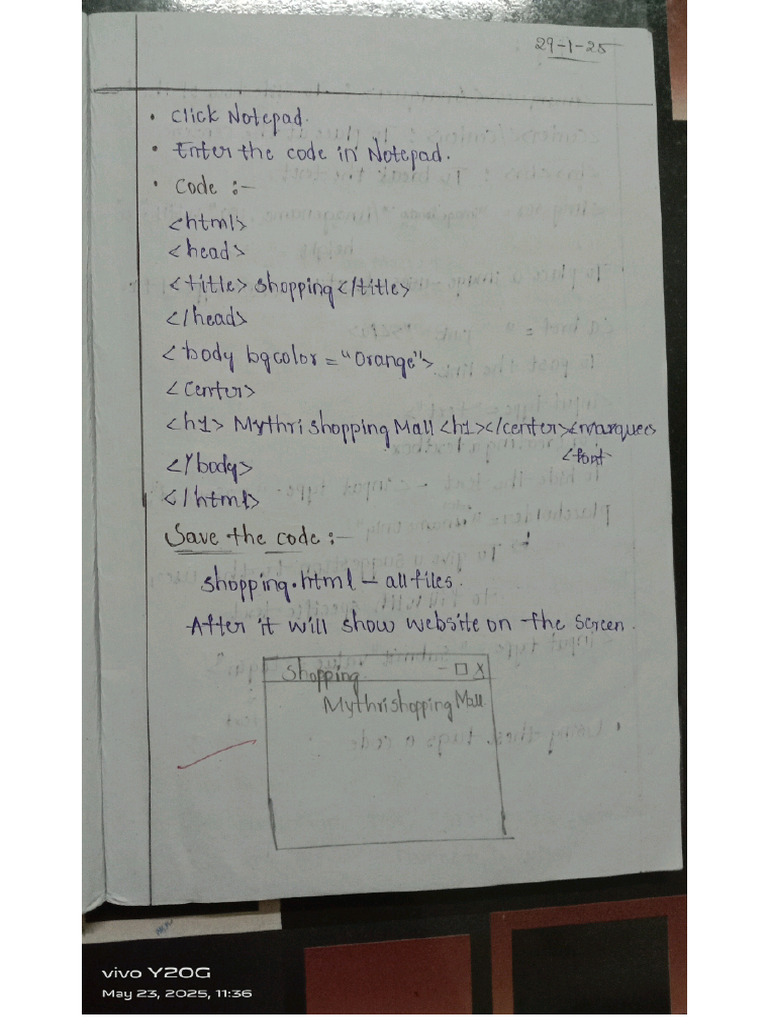 29-1-25
• Click Notepad.
• Enter the code in Notepad.
• Code :-
<html>
<head>
<title> shopping </title>
</head>
<body bgcolor = "Orange">
<center>
<h1> Mythri shopping Mall <h1></center><marquee>
<font
</body>
</html>
Save the code :-
shopping.html - all files.
After it will show website on the screen.
Shopping - □ X
Mythri shopping Mall
vivo Y20G
May 23, 2025, 11:36